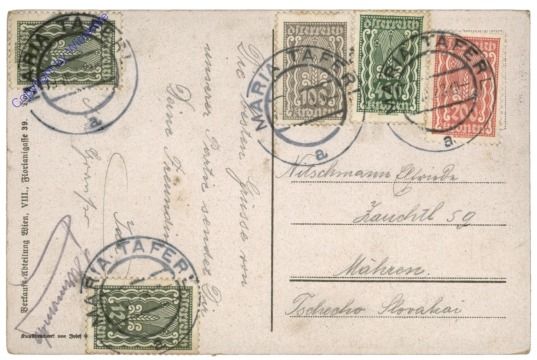 MARIA TAFERL
a
Österreich
100
Kronen
Österreich
Kronen
Österreich
20
Kronen
MARIA TAFERL
a
MARIA TAFERL
a
Die besten Grüsse von
unserer Partie sendet Dir
Deine Freundin
Nitschmann
Zauchtl 59
Mähren.
Tschecho Slovakai
Verkaufs-Abteilung Wien, VIII., Florianigasse 39.
MARIA TAFERL
a